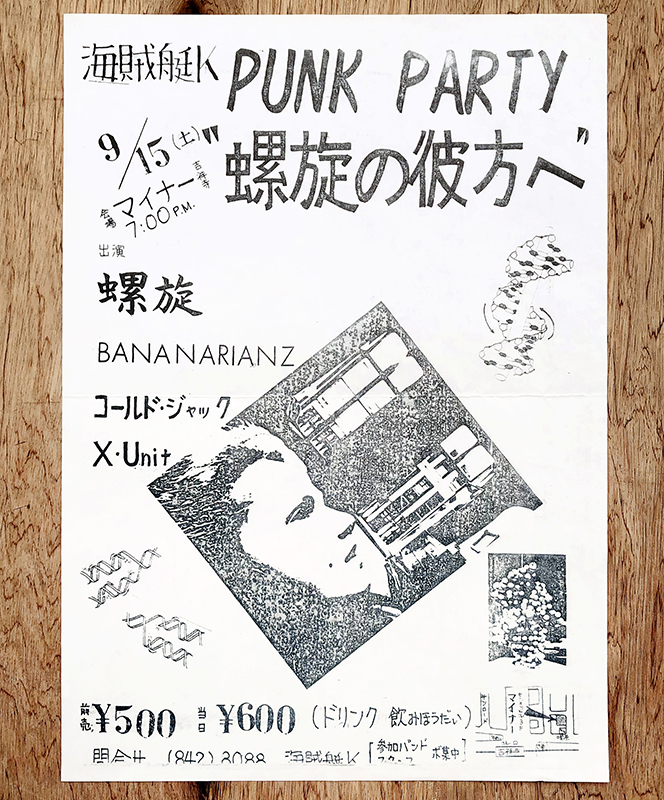 海賊艇K PUNK PARTY
"螺旋の彼方へ"
9/15(土)
会場 マイナー 吉祥寺
7:00 P.M.
出演
螺旋
BANANARIANZ
コールド・ジャック
X・Unit
前売 ¥500 当日 ¥600 (ドリンク 飲みほうだい)
問合せ (842)3088 海賊艇K [参加バンド スタッフ ボ集中]
マイナー